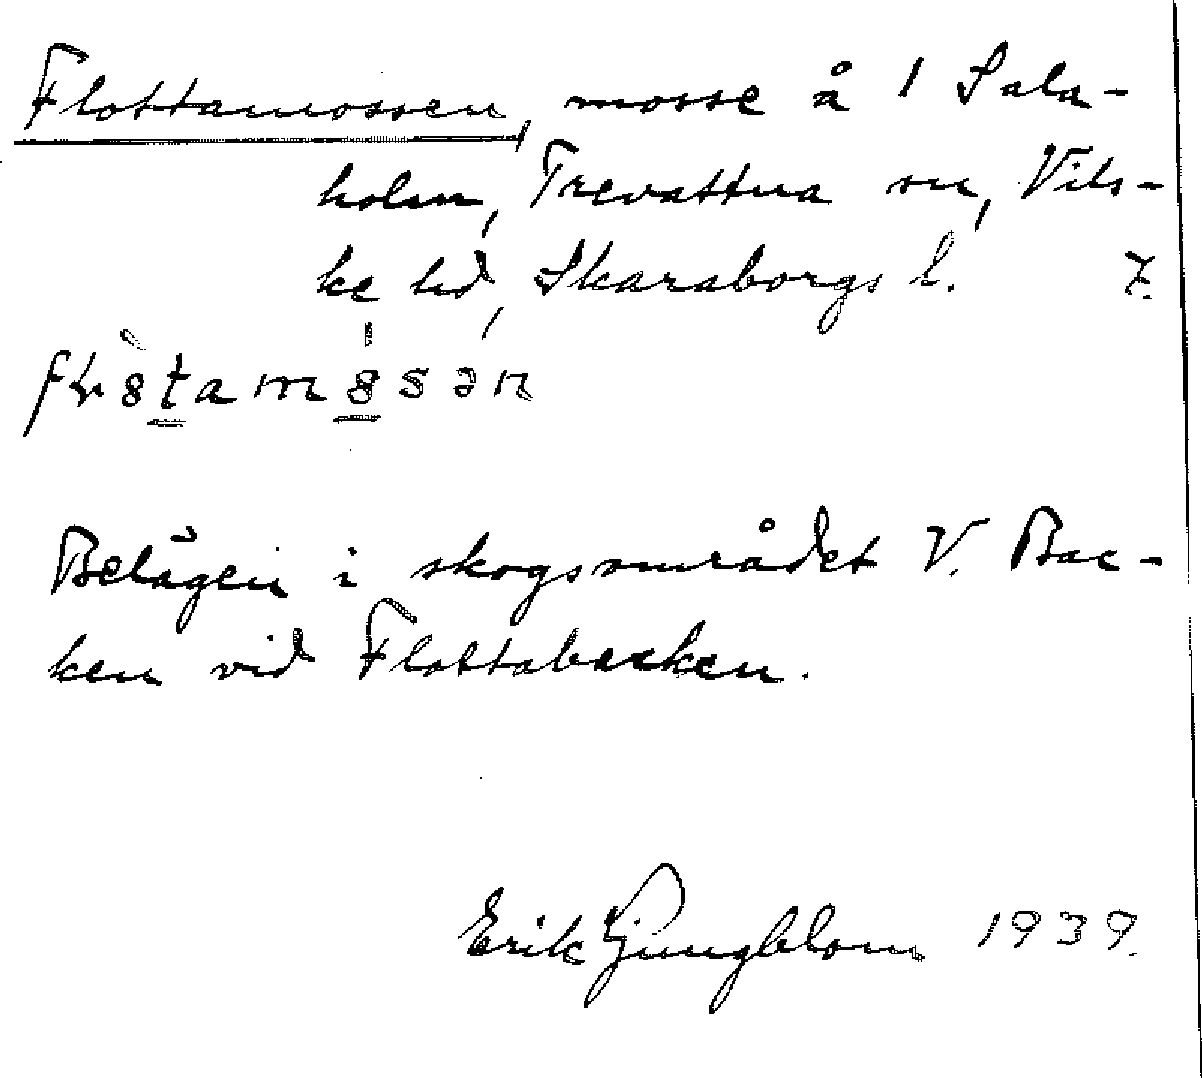 Flottamossen, mosse å 1 Sala-
holm, Trevattna sn, Vils-
ke hd, Skaraborgs l. 7.
Belägen i skogsområdet V. Bac-
ken vid Flottabacken.
Erik Ljungblom 1939.